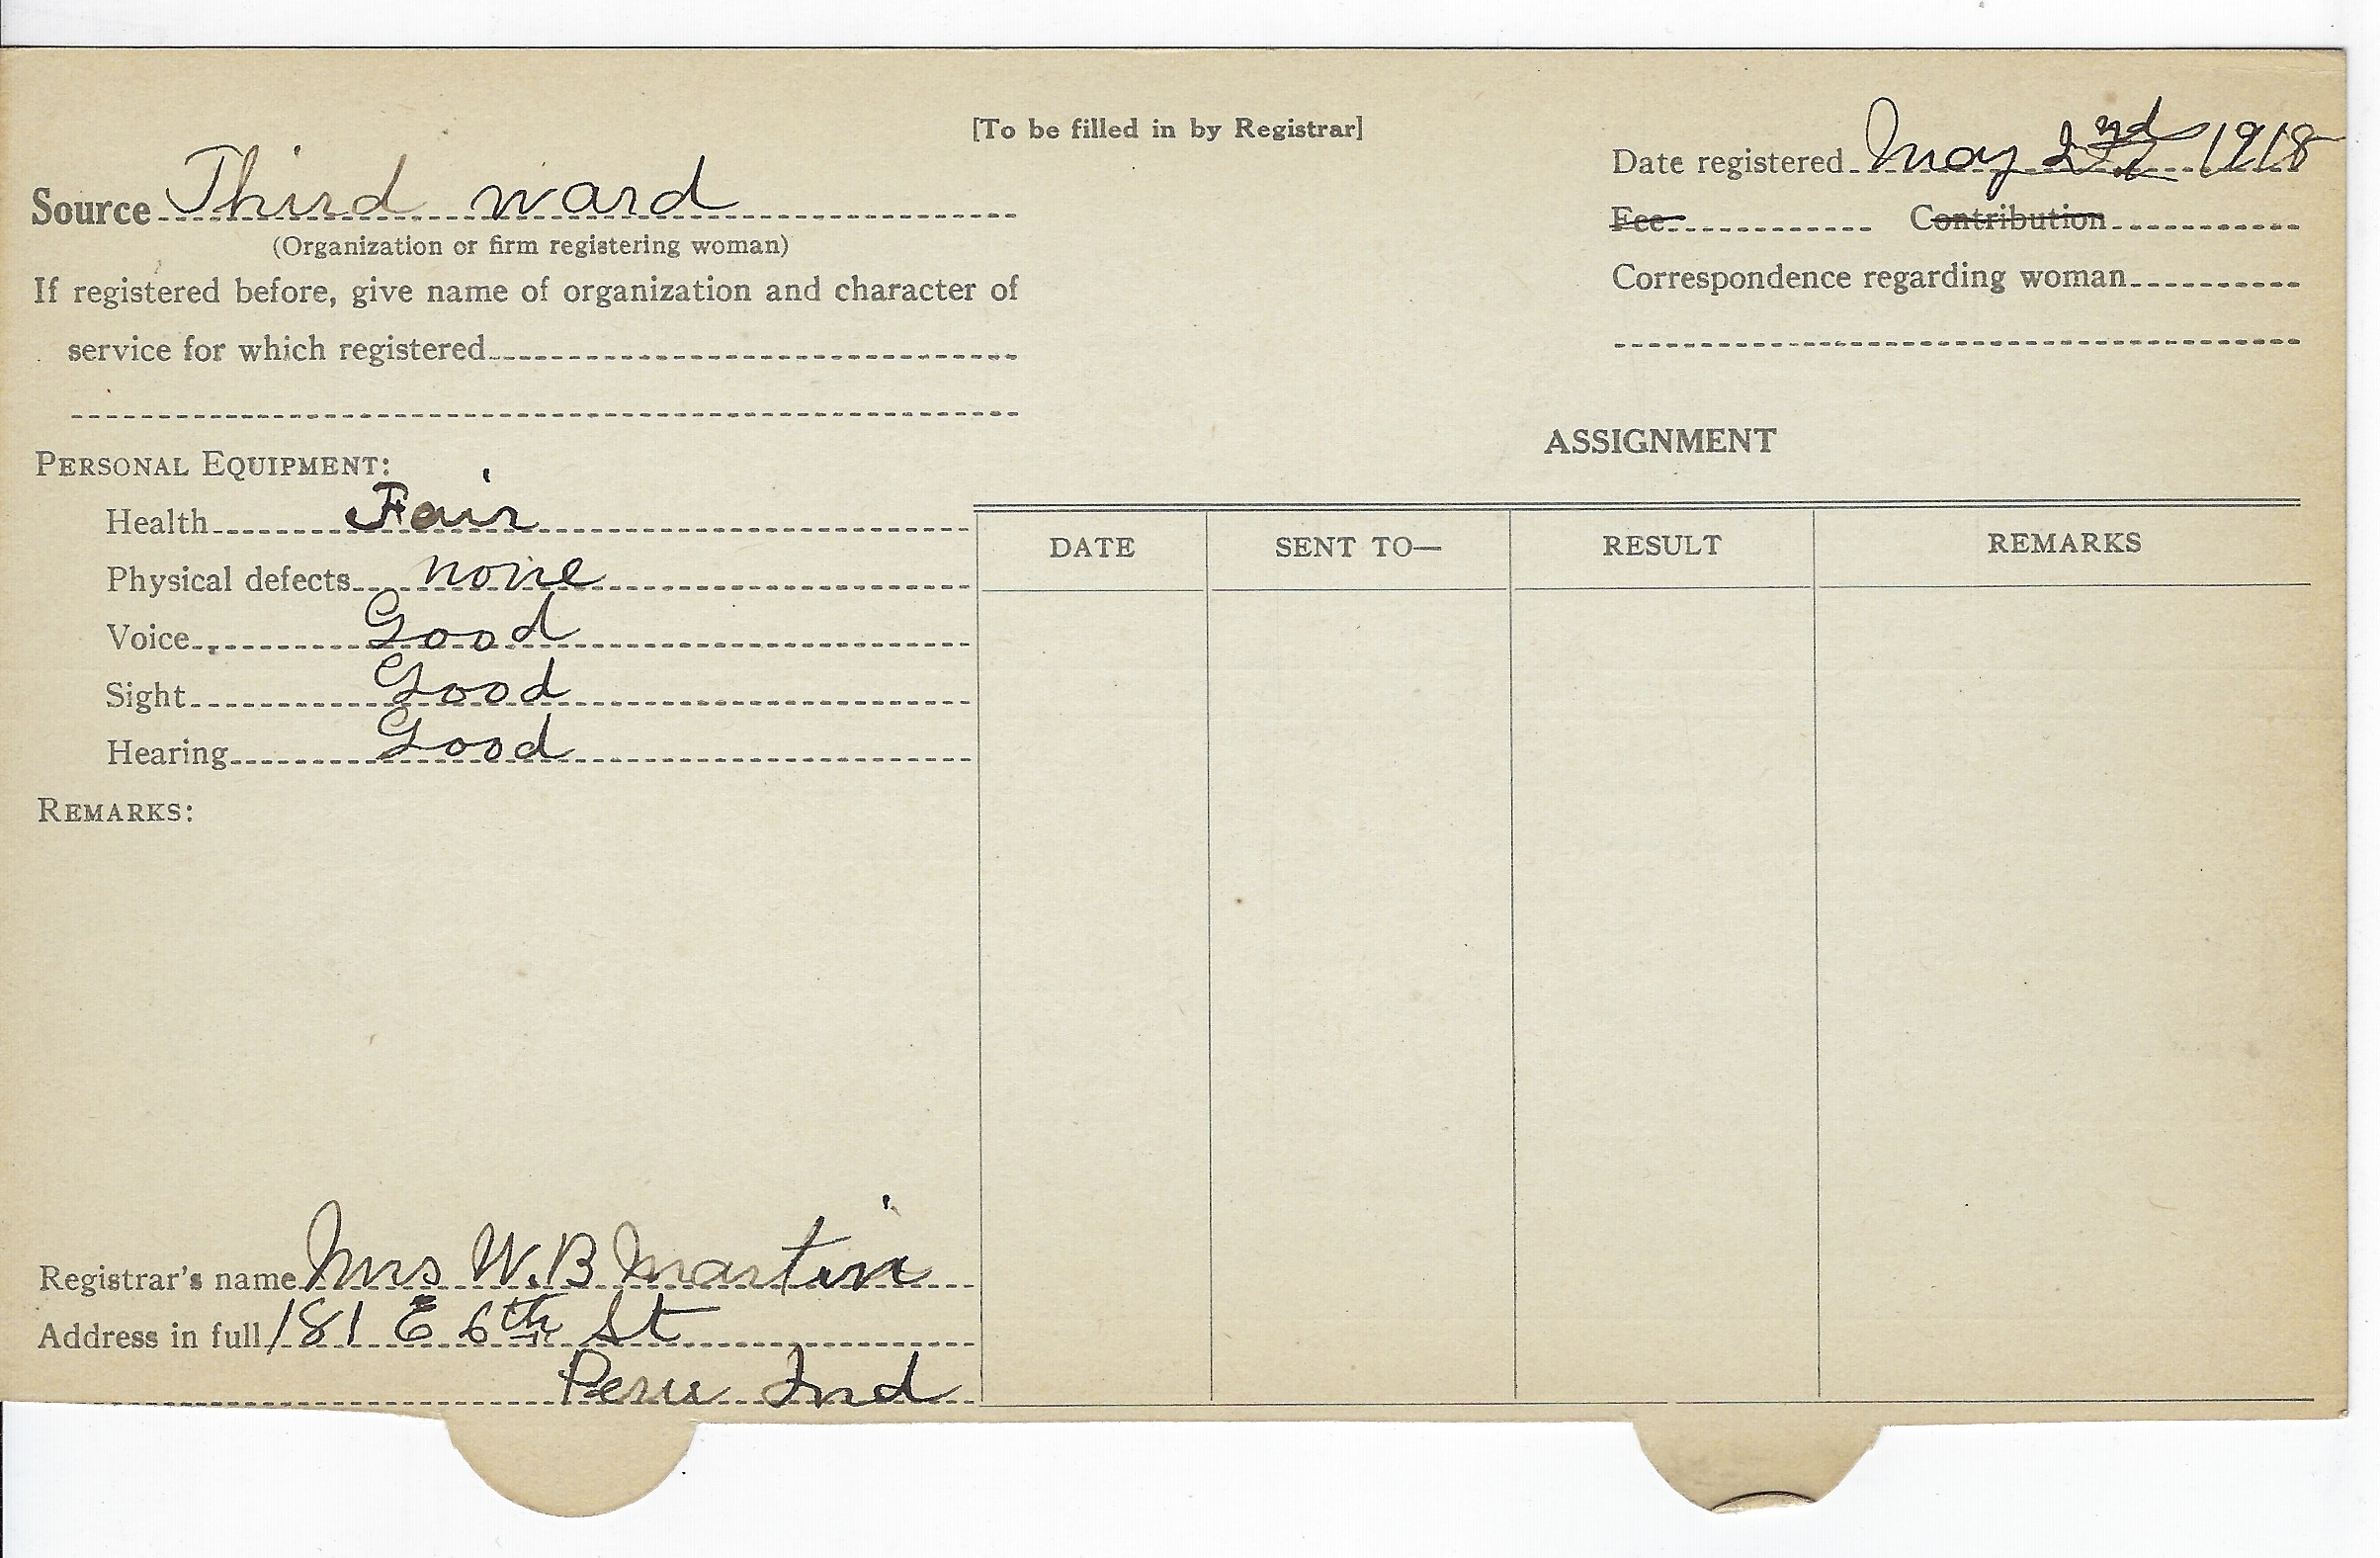 [To be filled in by Registrar]
Source Third ward
(Organization or firm registering woman)
If registered before, give name of organization and character of
service for which registered
Date registered May 1918
Fee Contribution
Correspondence regarding woman
PERSONAL EQUIPMENT:
Health Fair
Physical defects none
Voice Good
Sight Good
Hearing Good
REMARKS:
Registrar's name Mrs W.B Martin
Address in full 181 E 6th St
Peru Ind
ASSIGNMENT
DATE SENT TO— RESULT REMARKS